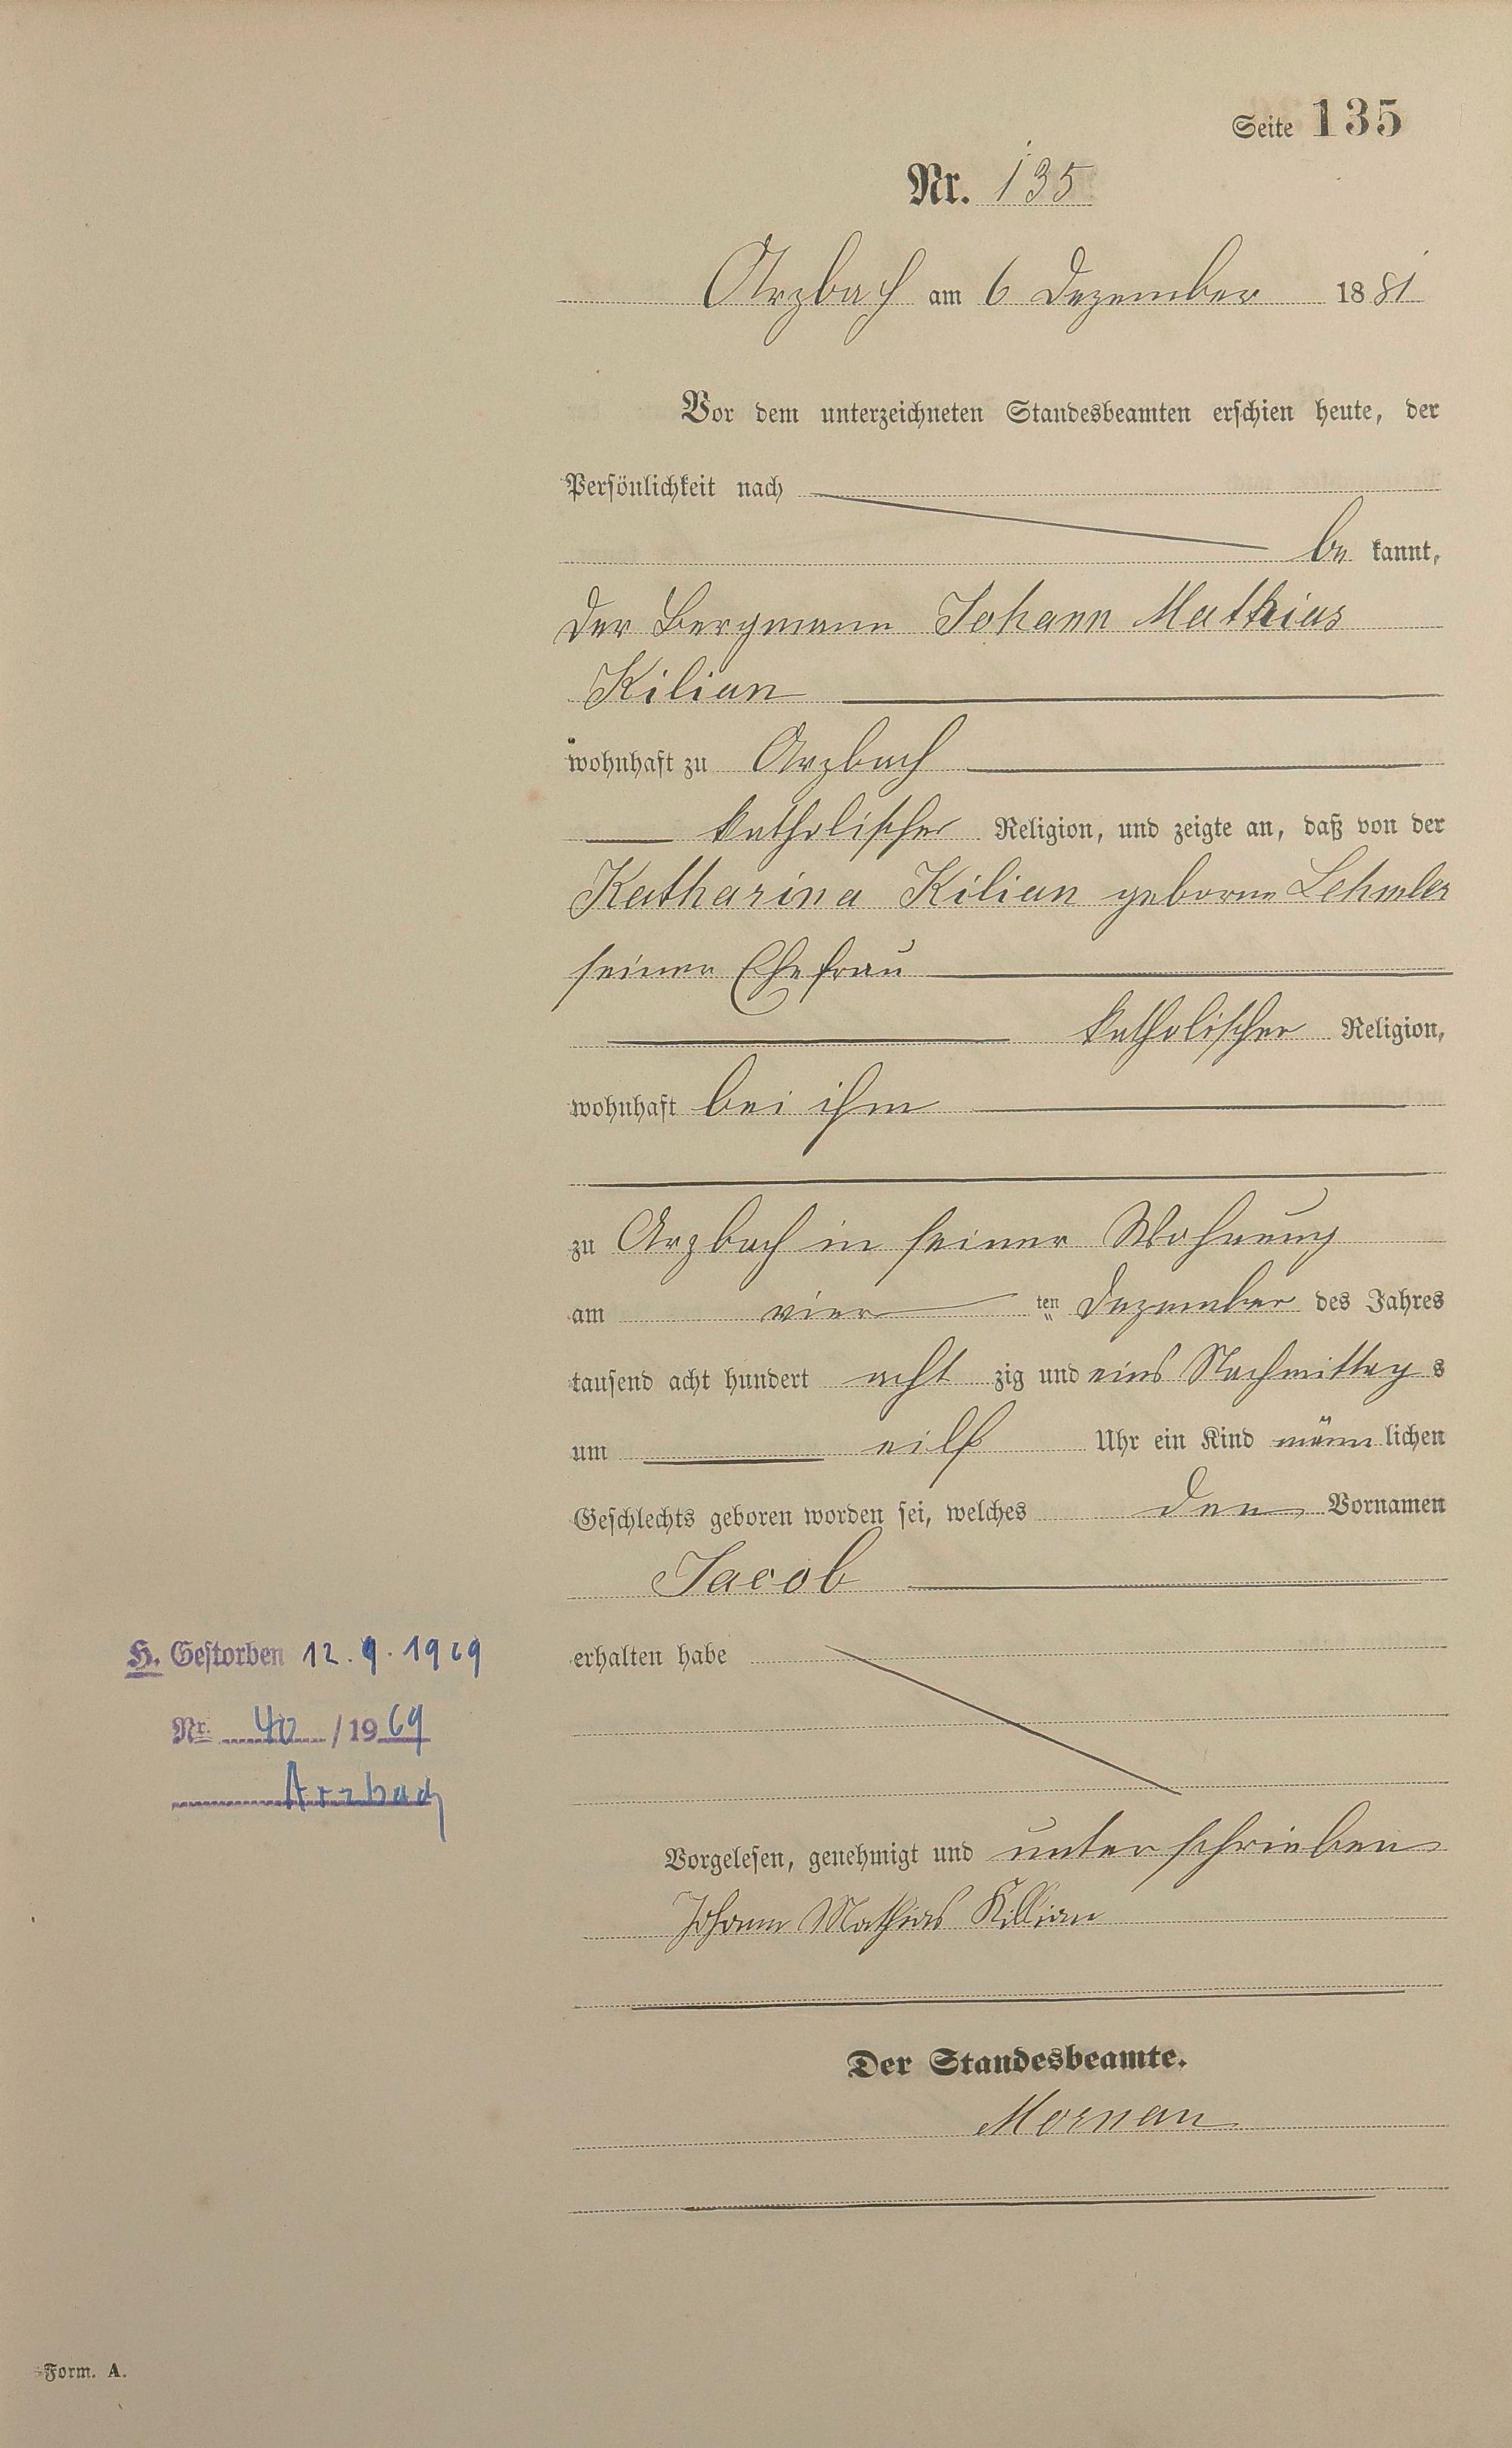 Seite 135
Nr. 135
Arzbach am 6 Dezember 1881
Vor dem unterzeichneten Standesbeamten erschien heute, der
Persönlichkeit nach
be kannt,
der Bergmann Johann Mathias
Kilian
wohnhaft zu Arzbach
katholischer Religion, und zeigte an, daß von der
Katharina Kilian geborne Lehmler
seiner Ehefrau
katholischer Religion,
wohnhaft bei ihm
zu Arzbach in seiner Wohnung
am vier ten Dezember des Jahres
tausend acht hundert acht zig und eins Nachmittag s
um eilf Uhr ein Kind männ lichen
Geschlechts geboren worden sei, welches den Vornamen
Jacob
erhalten habe
H. Gestorben 12.9.1969
Nr. 40 / 1969
Arzbach
Vorgelesen, genehmigt und unterschrieben
Johann Mathias Killian
Der Standesbeamte.
Mornan
Form. A.